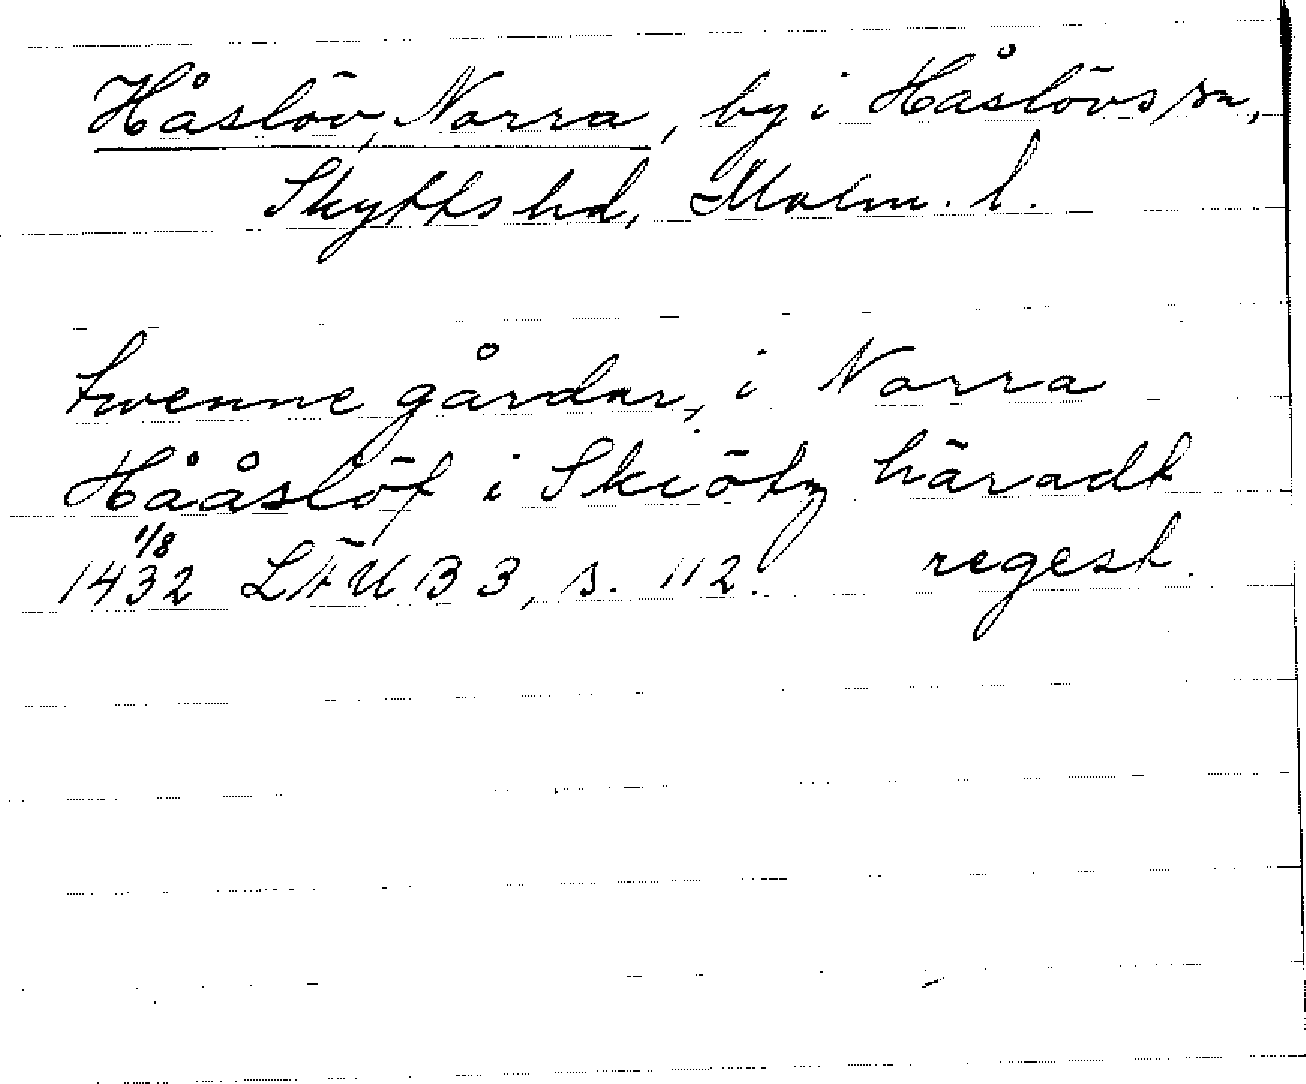 Håslöv, Norra, by i Håslövs sn,
Skytts hd, Malm. l.
twenne gårdar, i Norra
Hååslöf i Skiötz häradt
1/8
1432 LÄUB 3, s. 112. regest.